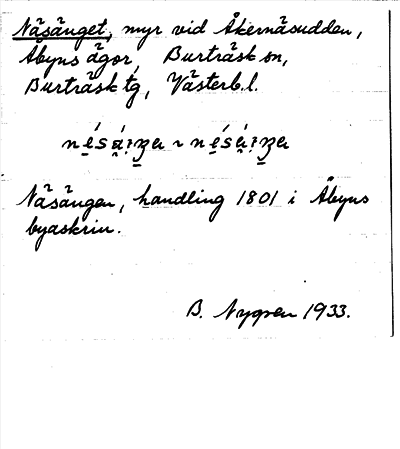 Näsänget, myr vid Åkernäsudden,
Åbyns ägor, Burträsk sn,
Burträsk tg, Västerb.l.
Näsängen, handling 1801 i Åbyns
byaskrin.
B. Nygren 1933.